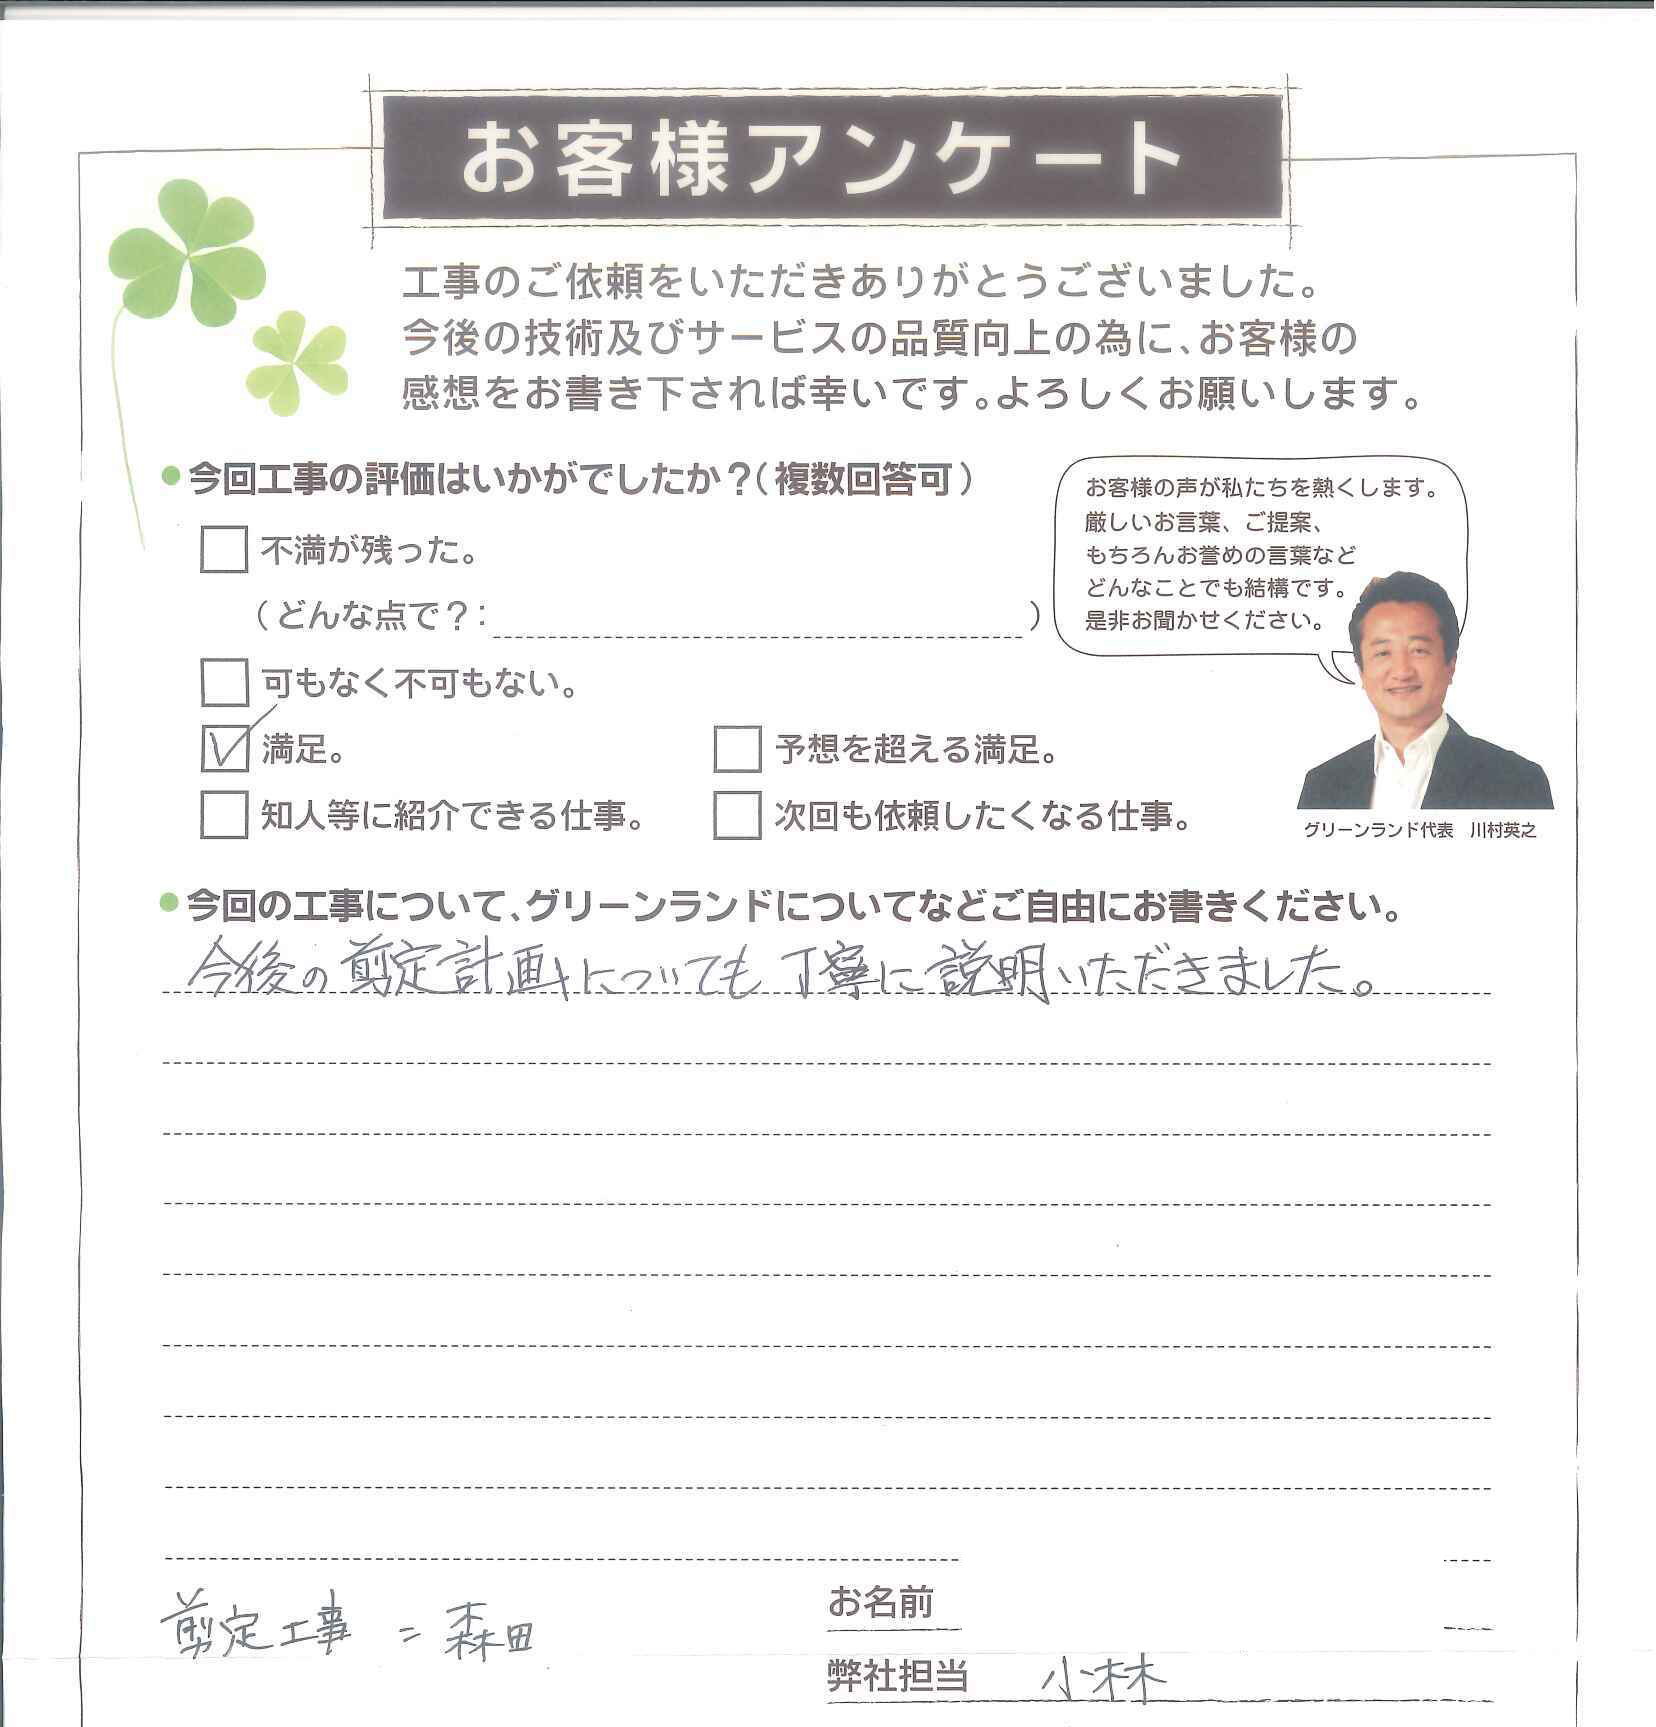 お客様アンケート
工事のご依頼をいただきありがとうございました。
今後の技術及びサービスの品質向上の為に、お客様の
感想をお書き下されば幸いです。よろしくお願いします。
●今回工事の評価はいかがでしたか？（複数回答可）
不満が残った。
（どんな点で？：）
可もなく不可もない。
満足。
予想を超える満足。
知人等に紹介できる仕事。
次回も依頼したくなる仕事。
お客様の声が私たちを熱くします。
厳しいお言葉、ご提案、
もちろんお誉めの言葉など
どんなことでも結構です。
是非お聞かせください。
グリーンランド代表　川村英之
●今回の工事について、グリーンランドについてなどご自由にお書きください。
今後の剪定計画についても丁寧に説明いただきました。
剪定工事 = 森田
お名前
弊社担当 小林